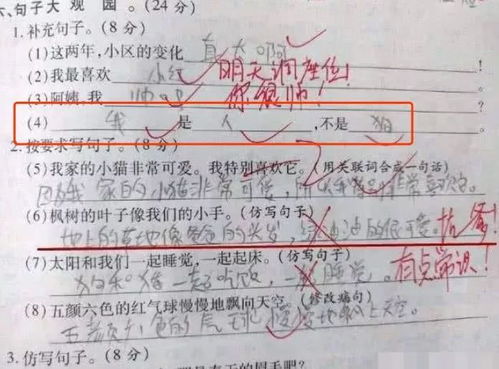 六、句子大观园。(24分)
1.补充句子。(8分)
(1)这两年,小区的变化 真大啊 !
(2)我最喜欢 小红 明天调座位! !
(3)阿姨,我 帅吗 你很帅! !
(4) 我 是 人 ,不是 狗
2.按要求写句子。(8分)
(5)我家的小猫非常可爱。我特别喜欢它。(用关联词合成一句话)
因为我家的小猫非常可爱,所以我
(6)枫树的叶子像我们的小手。(仿写句子)
地上的草地像爸爸的头发,绿油油的很
(7)太阳和我们一起睡觉,一起起床。(仿写句子)
狗和猫一起吃饭,一 睡觉。 有点常识!
(8)五颜六色的红气球慢慢地飘向天空。(修改病句)
五颜六色的气球慢慢地飘上天空。
3.仿写句子。(8分)